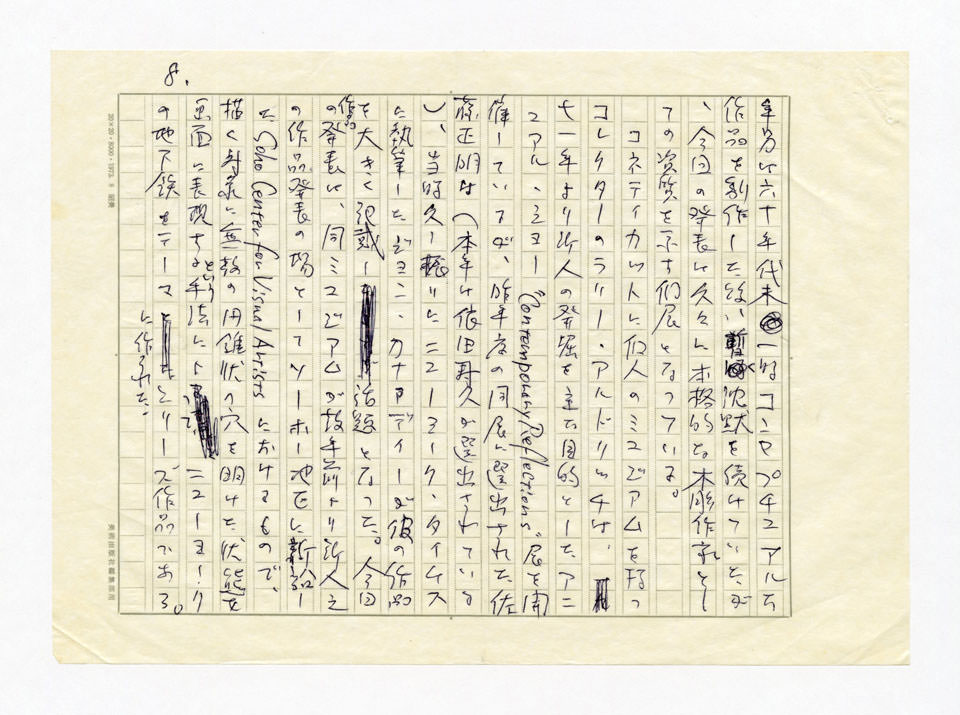 8.
年男は六十年代末一時コンセプチュアルな
作品を制作した後い暫く沈黙を続けていたが
、今回の発表は久々に本格的な木彫作家とし
ての資質を示す個展となっている。
コネティカットに個人のミユゼアムを持つ
コレクターのラリー・アルドリッチは、
七一年より新人の発掘を主な目的としたアニ
ュアル・ショー "Contemporary Reflections" 展を開
催しているが、昨年度の同展に選出された佐
藤正明は(本年は依田寿久が選出されている
)、当時久し振りにニューヨーク・タイムス
に執筆したジョン・カナディーが彼の作品
を大きく記載し話題となった。今回
の作品発表は、同ミユゼアムが数年前より新人
の作品発表の場としてソーホー地区に新設し
た Soho Center for Visual Artists におけるもので、
描く対象に無数の円錐状の穴を明けた状態を
画面に表現するという手法によって、ニューヨーク
の地下鉄をテーマに作られたシリーズ作品である。
20×20・8000・1973.8
美術出版社編集